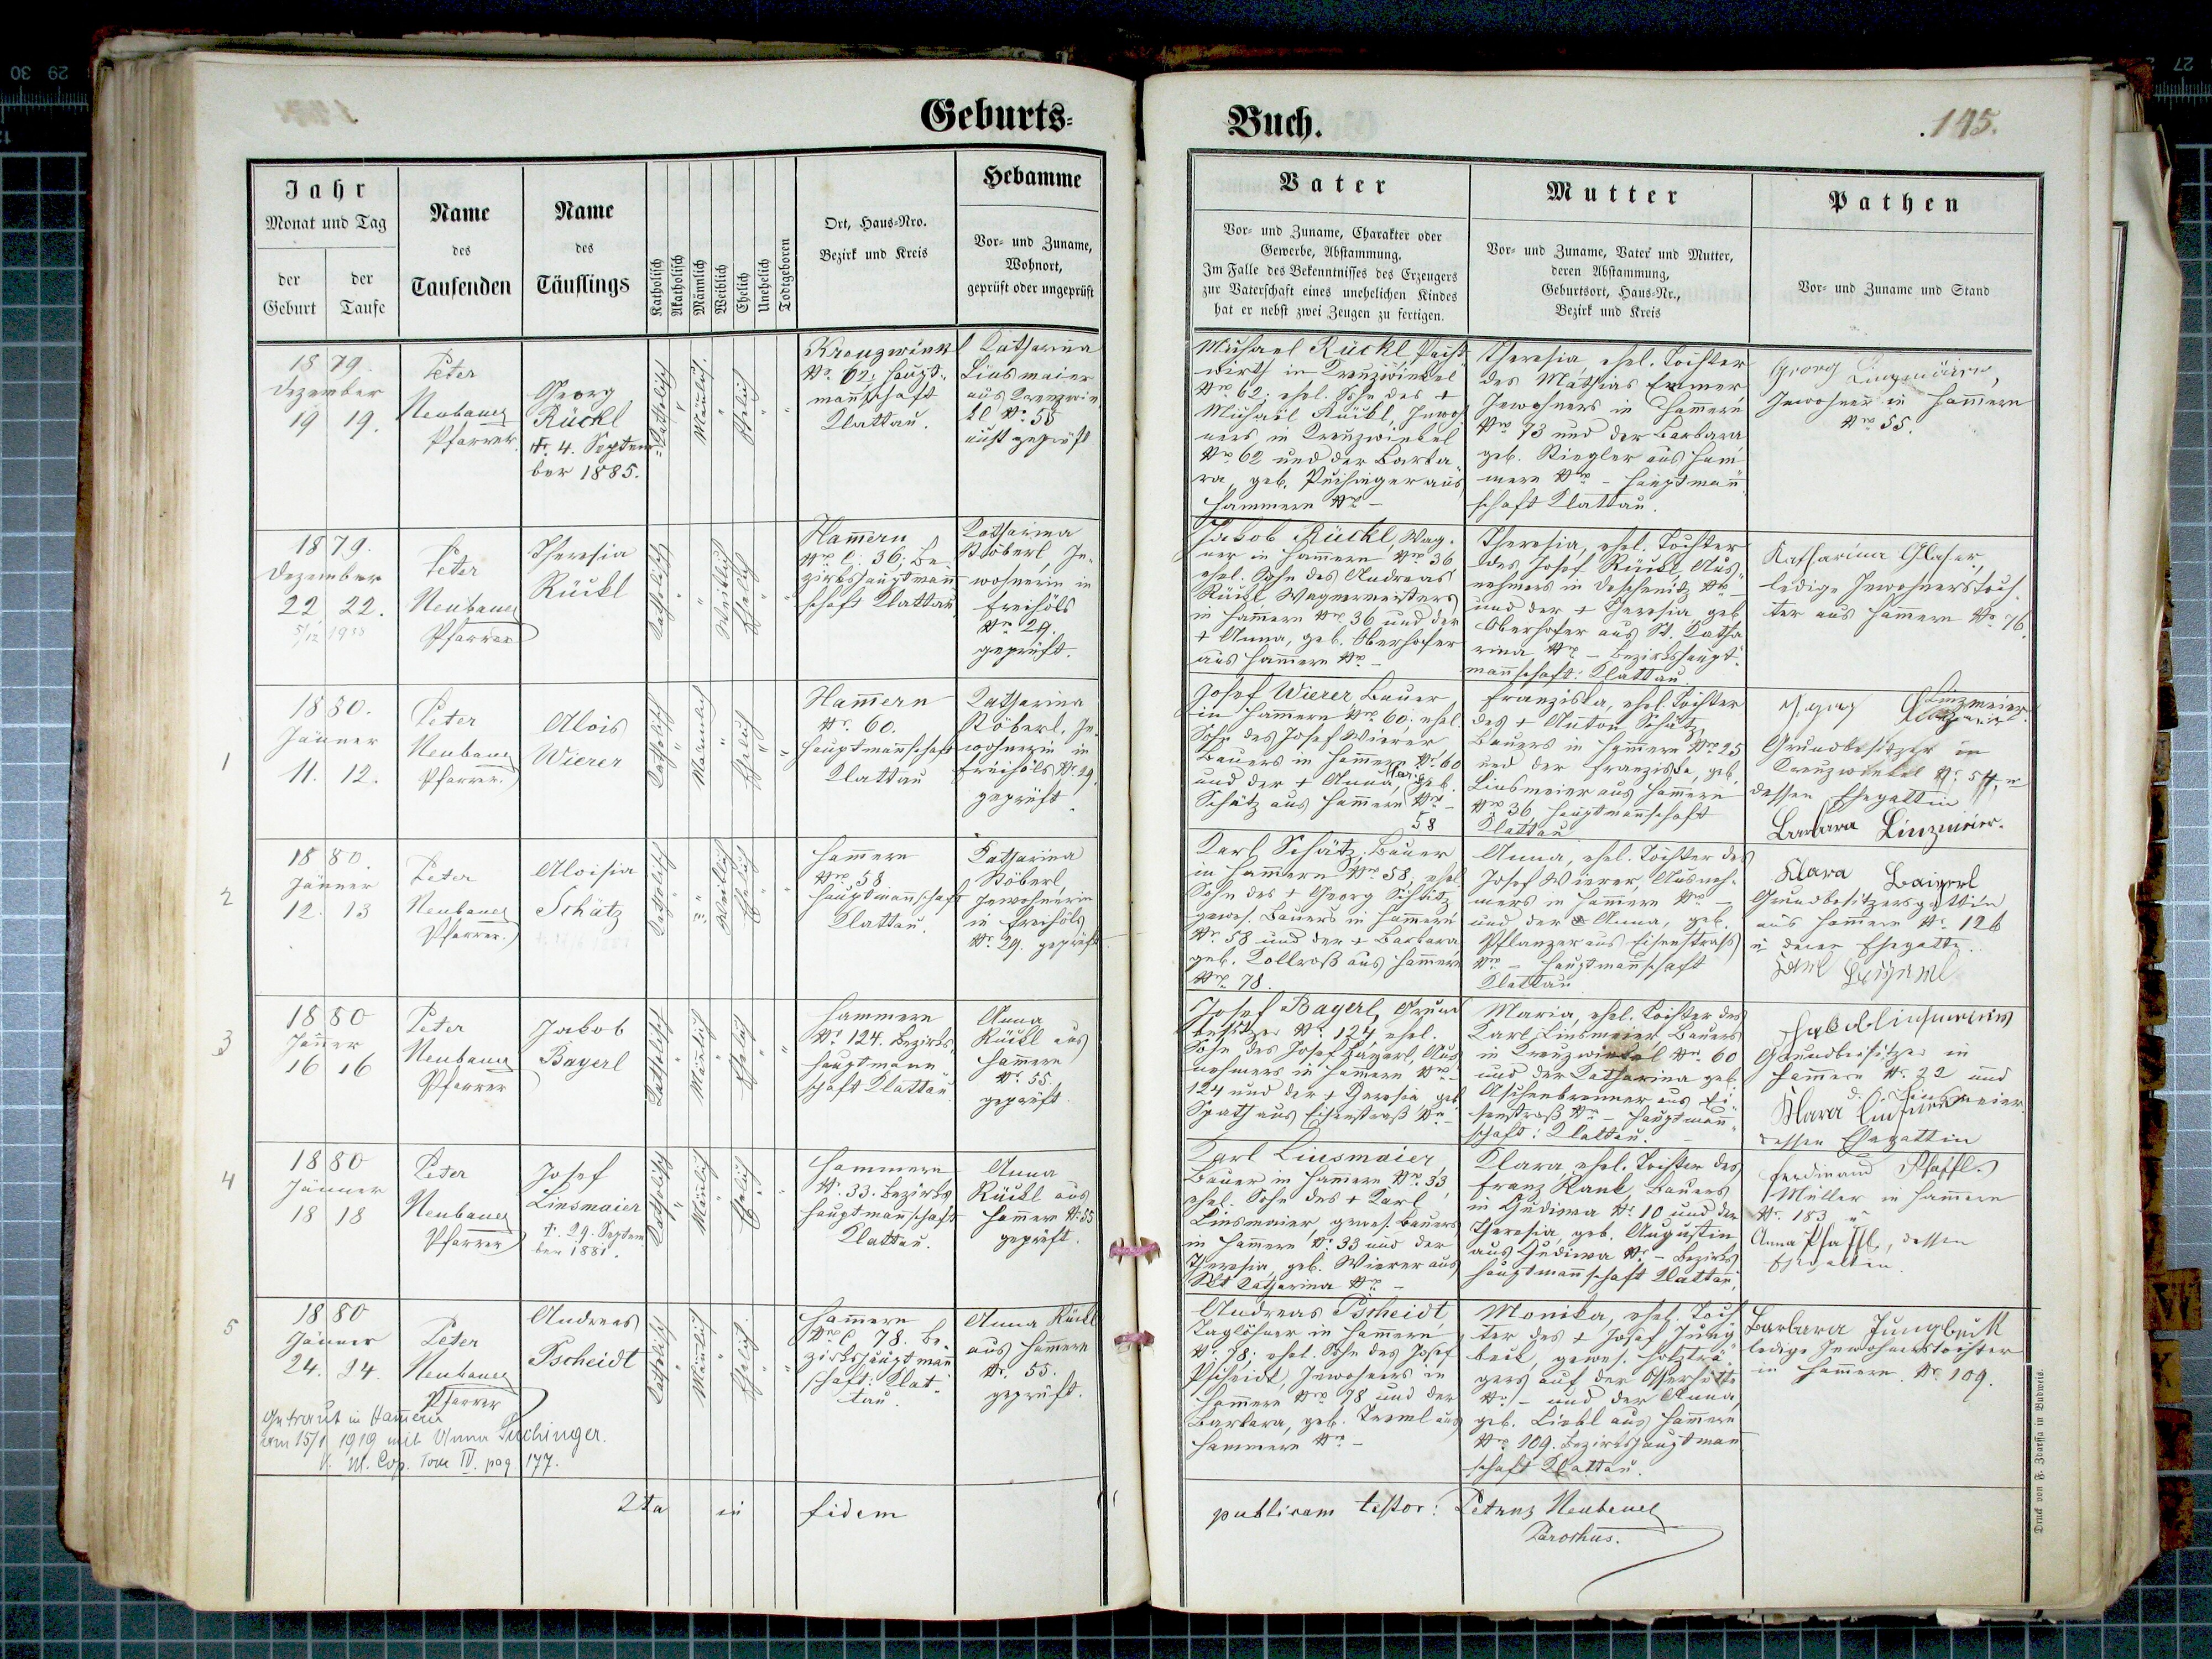 Geburts-
Buch.
145.
Jahr
Monat und Tag
der
Geburt
der
Taufe
Name
des
Taufenden
Name
des
Täuflings
Katholisch
Akatholisch
Männlich
Weiblich
Ehelich
Unehelich
Todtgeboren
Ort, Haus-Nro.
Bezirk und Kreis
Hebamme
Vor- und Zuname,
Wohnort,
geprüft oder ungeprüft
Vater
Vor- und Zuname, Charakter oder
Gewerbe, Abstammung.
Im Falle des Bekenntnisses des Erzeugers
zur Vaterschaft eines unehelichen Kindes
hat er nebst zwei Zeugen zu fertigen.
Mutter
Vor- und Zuname, Vater und Mutter,
deren Abstammung,
Geburtsort, Haus-Nr.,
Bezirk und Kreis
Pathen
Vor- und Zuname und Stand
1879.
Dezember
19 19.
Peter
Neubauer
Pfarrer.
Georg
Rückl
†. 4. Septem-
ber 1885.
Katholisch
Mänlich.
Ehelich
Kreuzwinkl
Nr. 62; Haupt-
mannschaft
Klattau.
Katharina
Linsmaier
aus Kreuzwin-
kl Nr. 55
geprüft
Michael Rückl,
wirth in Kreuzwinkel
Nro 62; ehel. Sohn des †
Michael Rückl, Inwoh-
ners in Kreuzwinkel
Nro 62 und der Barba-
ra, geb. Puchinger aus
Hammern Nro -
Theresia, ehel. Tochter
des Mathias Emmer
Inwohners in Hammern
Nro 73 und der Barbara
geb. Stiegler aus Ham-
mern Nro - Hauptmann-
schaft Klattau.
Georg
Inwohner in Hammern
Nro 55.
1879.
Dezember
22 22.
5/12 1938
Peter
Neubauer
Pfarrer
Theresia
Rückl
Katholisch
Weiblich
Ehelich
Hammern
Nro C. 36; Be-
zirkshauptmann-
schaft Klattau
Katharina
Stöberl, In-
wohnerin in
Freihöls
Nro 29.
geprüft.
Jakob Rückl, Wag-
ner in Hammern Nro 36
ehel. Sohn des Andreas
Rückl Wagnermeisters
in Hammern Nro 36 und der
† Anna, geb. Oberhofer
aus Hammern Nro -
Theresia, ehel. Tochter
des Josef Rückl, Aus-
nehmers in Deschenitz Nro -
und der † Theresia, geb.
Oberhofer aus St. Katha-
rina Nro - Bezirkshaupt-
mannschaft: Klattau
Katharina Glaser,
ledige Inwohnerstoch-
ter aus Hammern Nro 76.
1
1880.
Jänner
11. 12.
Peter
Neubauer
Pfarrer.
Alois
Wierer
Katholisch
Mänlich
Ehelich
Hammern
Nr. 60.
Hauptmannschaft
Klattau
Katharina
Stöberl, In-
wohnerin in
Freihöls Nr. 29.
geprüft.
Josef Wierer, Bauer
in Hammern Nro 60; ehel.
Sohn des Josef Wierer
Bauers in Hammern Nr. 60
und der † Anna, geb.
Schätz aus Hammern Nro -
58
Franziska, ehel. Tochter
des † Anton Schätz,
Bauers in Hammern Nro 25
und der Franziska, geb.
Linsmeier aus Hammern
Nro 36 Hauptmannschaft
Klattau
Linzmeier
Grundbesitzer in
Kreuzwinkel Nr. 54, u
dessen Ehegattin
Barbara Linzmeier.
2
1880.
Jänner
12. 13
Peter
Neubauer
Pfarrer.
Aloisia
Schätz
Katholisch
Weiblich
Ehelich
Hammern
Nro 58
Hauptmannschaft
Klattau.
Katharina
Stöberl,
Inwohnerin
in Freihöls
Nr. 29. geprüft
Karl Schätz, Bauer
in Hammern Nro 58; ehel.
Sohn des † Georg Schätz
gewes. Bauers in Hammern
Nr. 58 und der † Barbara
geb. Kollroß aus Hammern
Nro 78.
Anna, ehel. Tochter des
Josef Wierer, Ausneh-
mers in Hammern Nro -
und der Anna, geb.
Pflanzer aus Eisenstraß
Nro - Hauptmannschaft
Klattau
Klara Baierl
Grundbesitzersgattin
aus Hammern Nr. 126
u deren Ehegatte.
3
1880
Jänner
16 16
Peter
Neubauer
Pfarrer
Jakob
Bayerl
Katholisch
Mänlich
Ehelich
Hammern
Nr. 124. Bezirks-
hauptmann-
schaft Klattau
Anna
Rückl aus
Hammern
Nr. 55.
geprüft.
Josef Bayerl, Grund-
besitzer Nr. 124, ehel.
Sohn des Josef Bayerl, Aus-
nehmers in Hammern Nro
124 und der † Theresia geb
Spath aus Eisenstraß Nro -
Maria, ehel. Tochter des
Karl Linsmeier, Bauers
in Kreuzwinkel Nr. 60
und der Katharina geb.
Aschenbrenner aus Ei-
senstraß Nro - Hauptmann-
schaft: Klattau.
Grundbesitzer in
Hammern Nr. 22 und
Klara
dessen Ehegattin
4
1880
Jänner
18 18
Peter
Neubauer
Pfarrer
Josef
Linsmaier
†. 29. Septem-
ber 1881.
Katholisch
Mänlich
Ehelich
Hammern
Nr. 33. Bezirks-
hauptmannschaft
Klattau.
Anna
Rückl aus
Hammern Nr. 55
geprüft.
Karl Linsmaier,
Bauer in Hammern Nro 33,
ehel. Sohn des † Karl
Linsmaier, gewes. Bauers
in Hammern Nr. 33 und der
Theresia, geb. Wierer aus
Skt Katharina Nro -
Klara ehel. Tochter des
Franz Rank, Bauers
in Hudiwa Nr. 10 und der
Theresia, geb. Augustin
aus Hudiwa Nr. - Bezirks-
hauptmannschaft Klattau
Ferdinand Pfaffl.
Müller in Hammern
Nr. 183 u
Anna Pfaffl, dessen
Ehegattin.
5
1880
Jänner
24. 24.
Peter
Neubauer
Pfarrer
Andreas
Pscheidt
Katholisch
Mänlich
Ehelich
Hammern
Nro C. 78. Be-
zirkshauptmann-
schaft: Klat-
tau.
Anna Rückl
aus Hammern
Nr. 55.
geprüft.
Andreas Pscheidt,
Taglöhner in Hammern
Nr. 78; ehel. Sohn des Josef
Pscheidt, Inwohners in
Hammern Nro 78 und der
Barbara, geb. Treml aus
Hammern Nro -
Monika, ehel. Toch-
ter des † Josef Jung-
beck, gewes.
auf der Osserhütte
Nr. - und der Anna,
geb. Liebl aus Hammern
Nro 109. Bezirkshauptmann-
schaft Klattau.
Barbara Jungbeck
ledige Inwohnerstochter
in Hammern Nr. 109.
Getraut in Hammern
am 15/1 1919 mit Anna Puchinger.
V. M. Cop. Tom IV. pag. 177.
in fidem
publicam testor: Petrus Neubauer
Parochus.
Druck von F. Zdarssa in Budweis.